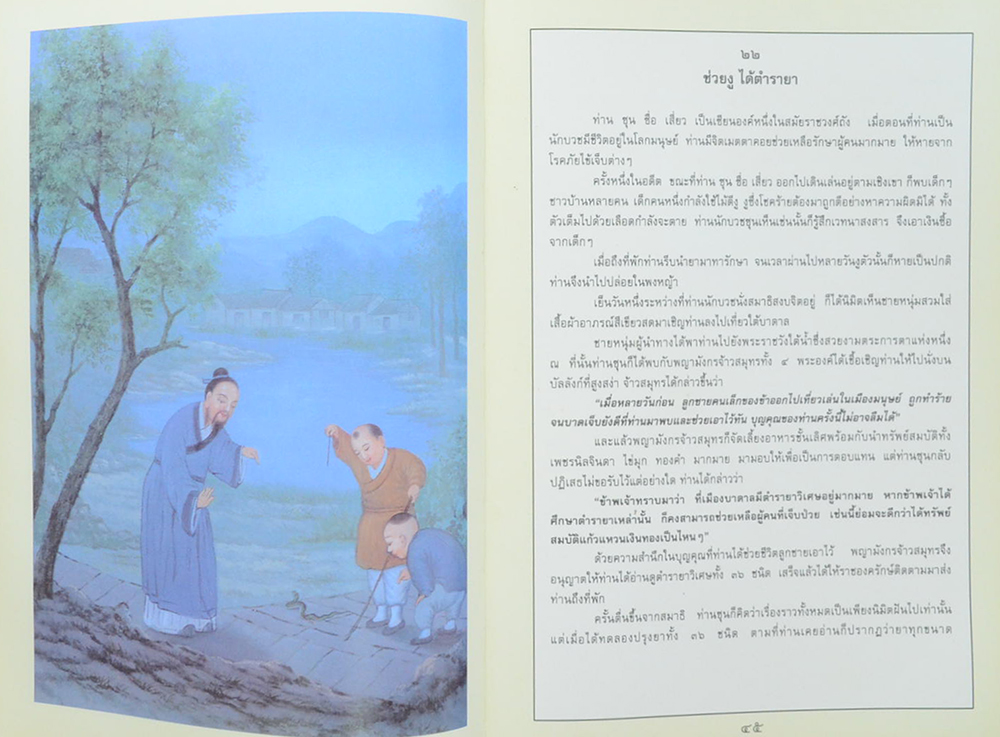 ๒๒
ช่วยงู ได้ตำรายา
ท่าน ซุน ซื่อ เสี่ยว เป็นเซียนองค์หนึ่งในสมัยราชวงศ์ถัง เมื่อตอนที่ท่านเป็น
นักบวชมีชีวิตอยู่ในโลกมนุษย์ ท่านมีจิตเมตตาคอยช่วยเหลือรักษาผู้คนมากมาย ให้หายจาก
โรคภัยไข้เจ็บต่างๆ
ครั้งหนึ่งในอดีต ขณะที่ท่าน ซุน ซื่อ เสี่ยว ออกไปเดินเล่นอยู่ตามเชิงเขา ก็พบเด็กๆ
ชาวบ้านหลายคน เด็กคนหนึ่งกำลังใช้ไม้ตีงู งูซึ่งโชคร้ายต้องมาถูกตีอย่างหาความผิดมิได้ ทั้ง
ตัวเต็มไปด้วยเลือดกำลังจะตาย ท่านนักบวชซุนเห็นเช่นนั้นก็รู้สึกเวทนาสงสาร จึงเอาเงินซื้อ
จากเด็กๆ
เมื่อถึงที่พักท่านรีบนำยามาทารักษา จนเวลาผ่านไปหลายวันงูตัวนั้นก็หายเป็นปกติ
ท่านจึงนำไปปล่อยในพงหญ้า
เย็นวันหนึ่งระหว่างที่ท่านนักบวชนั่งสมาธิสงบจิตอยู่ ก็ได้นิมิตเห็นชายหนุ่มสวมใส่
เสื้อผ้าอาภรณ์สีเขียวสดมาเชิญท่านลงไปเที่ยวใต้บาดาล
ชายหนุ่มผู้นำทางได้พาท่านไปยังพระราชวังใต้น้ำซึ่งสวยงามตระการตาแห่งหนึ่ง
ณ ที่นั้นท่านซุนก็ได้พบกับพญามังกรจ้าวสมุทรทั้ง ๔ พระองค์ได้เชื้อเชิญท่านให้ไปนั่งบน
บัลลังก์ที่สูงสง่า จ้าวสมุทรได้กล่าวขึ้นว่า
“เมื่อหลายวันก่อน ลูกชายคนเล็กของข้าออกไปเที่ยวเล่นในเมืองมนุษย์ ถูกทำร้าย
จนบาดเจ็บยังดีที่ท่านมาพบและช่วยเอาไว้ทัน บุญคุณของท่านครั้งนี้ไม่อาจลืมได้”
และแล้วพญามังกรจ้าวสมุทรก็จัดเลี้ยงอาหารชั้นเลิศพร้อมกับนำทรัพย์สมบัติทั้ง
เพชรนิลจินดา ไข่มุก ทองคำ มากมาย มามอบให้เพื่อเป็นการตอบแทน แต่ท่านซุนกลับ
ปฏิเสธไม่ขอรับไว้แต่อย่างใด ท่านได้กล่าวว่า
“ข้าพเจ้าทราบมาว่า ที่เมืองบาดาลมีตำรายาวิเศษอยู่มากมาย หากข้าพเจ้าได้
ศึกษาตำรายาเหล่านั้น ก็คงสามารถช่วยเหลือผู้คนที่เจ็บป่วย เช่นนี้ย่อมจะดีกว่าได้ทรัพย์
สมบัติแก้วแหวนเงินทองเป็นไหนๆ”
ด้วยความสำนึกในบุญคุณที่ท่านได้ช่วยชีวิตลูกชายเอาไว้ พญามังกรจ้าวสมุทรจึง
อนุญาตให้ท่านได้อ่านดูตำรายาวิเศษทั้ง ๓๖ ชนิด เสร็จแล้วได้ให้ราชองครักษ์ติดตามมาส่ง
ท่านถึงที่พัก
ครั้นตื่นขึ้นจากสมาธิ ท่านซุนก็คิดว่าเรื่องราวทั้งหมดเป็นเพียงนิมิตฝันไปเท่านั้น
แต่เมื่อได้ทดลองปรุงยาทั้ง ๓๖ ชนิด ตามที่ท่านเคยอ่านก็ปรากฏว่ายาทุกขนาด
๔๕